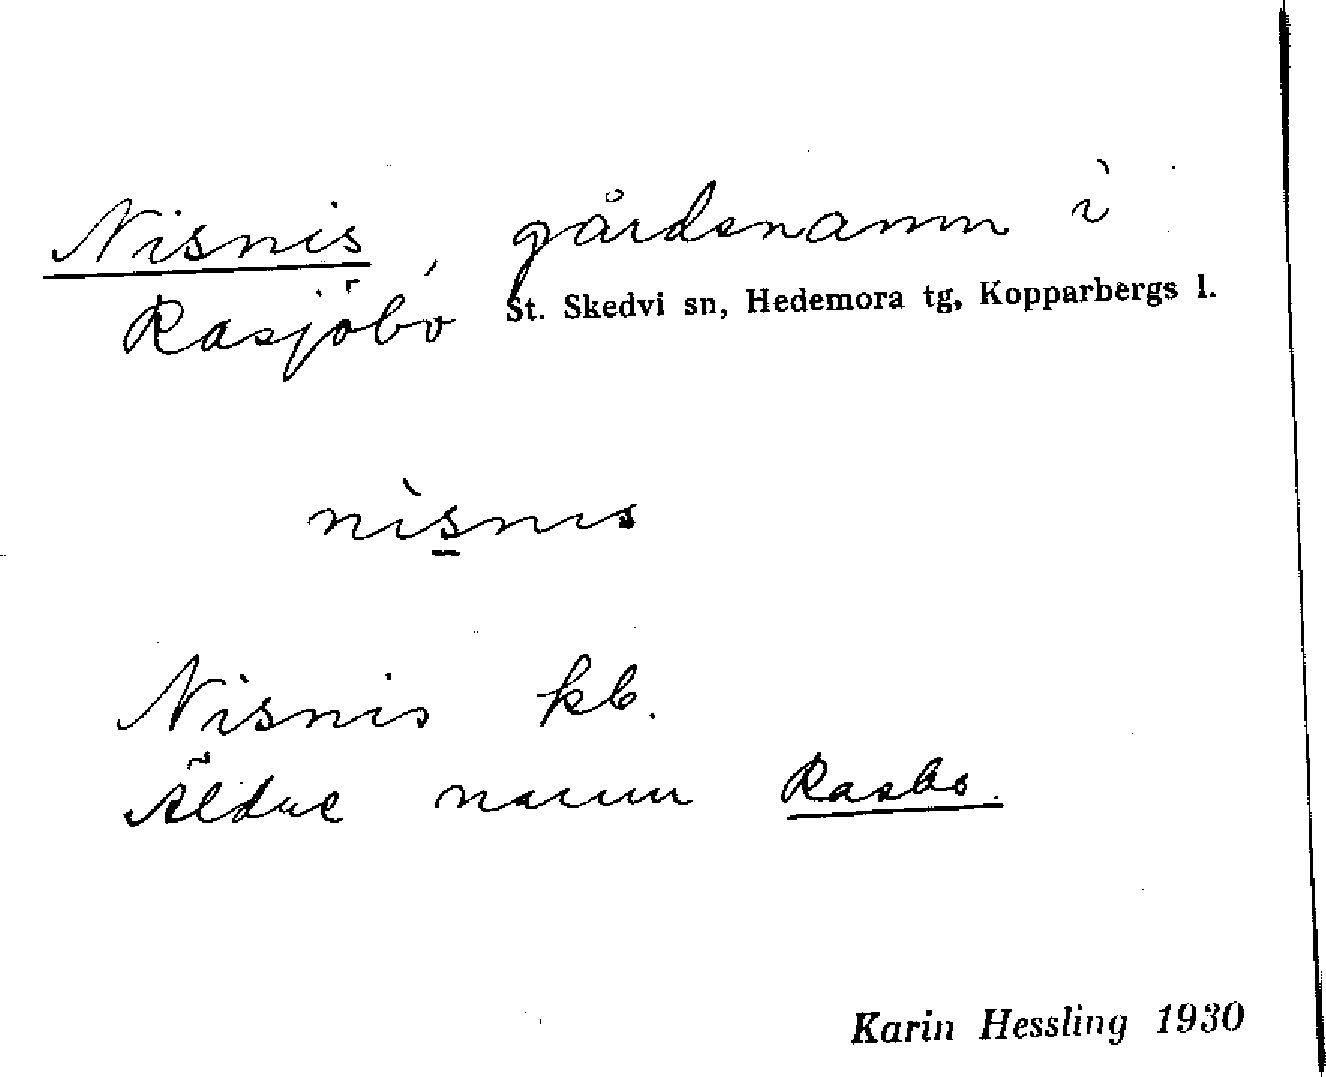 Nisnis, gårdsnamn i
Rasjöbo St. Skedvi sn, Hedemora tg, Kopparbergs l.
nìsnis
Nisnis kb.
Äldre namn Rasbo.
Karin Hessling 1930